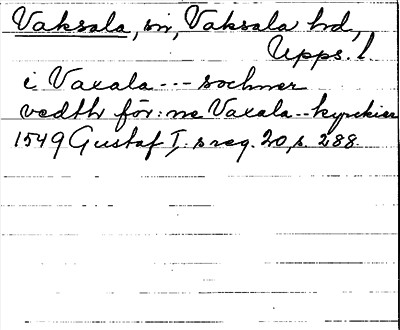 Vaksala, sn, Vaksala hd,
Upps. l.
i Vaxala --- sochner
vedthr för:ne Vaxala -- kyrckier
1549 Gustaf I:s reg. 20, s. 288.